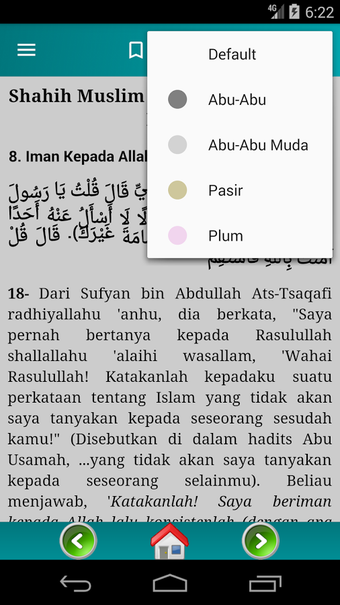 4G 6:22
Default
Shahih Muslim
Abu-Abu
Abu-Abu Muda
8. Iman Kepada Allah
Pasir
يِّ قَالَ قُلْتُ يَا رَسُولَ
لًا لَا أَسْأَلُ عَنْهُ أَحَدًا
Plum
امَةَ غَيْرَكَ). قَالَ قُلْ
18- Dari Sufyan bin Abdullah Ats-Tsaqafi
radhiyallahu 'anhu, dia berkata, "Saya
pernah bertanya kepada Rasulullah
shallallahu 'alaihi wasallam, 'Wahai
Rasulullah! Katakanlah kepadaku suatu
perkataan tentang Islam yang tidak akan
saya tanyakan kepada seseorang sesudah
kamu!" (Disebutkan di dalam hadits Abu
Usamah, ...yang tidak akan saya tanyakan
kepada seseorang selainmu). Beliau
menjawab, 'Katakanlah! Saya beriman
kepada Allah lalu konsistenlah (dengan apa